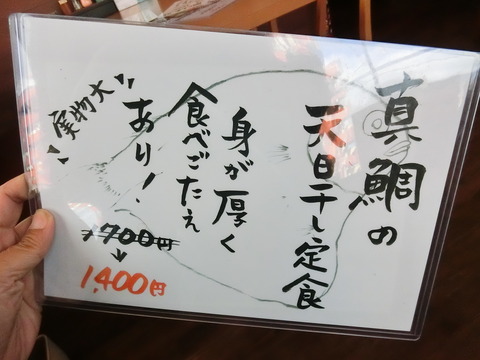 真鯛の
天日干し定食
身が厚く
食べごたえ
あり！
実物大
1700円
↓
1,400円